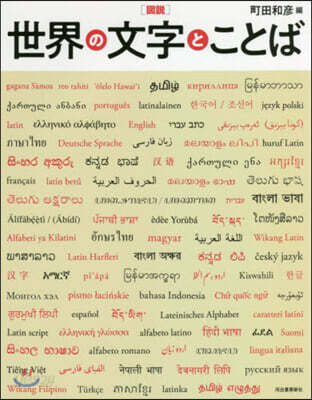 [図説]
町田和彦 編
世界の文字とことば
gagana Sāmoa reo tahiti ʻōlelo Hawaiʻi தமிழ் кириллица မြန်မာဘာသာ
ქართული ანბანი português latinalainen 한국어 / 조선어 język polski
latin ελληνικό αλφάβητο English כתב עברי
ภาษาไทย Deutsche Sprache زبان فارسی বাংলা huruf Latin
සිංහල අකුරු ಕನ್ನಡ ಭಾಷೆ 汉语 ქართული ენა
français latin betű മലയാളം الحروف العربية
తెలుగు
Álífábẹ́ẹ̀tì (Ábídí) ਪੰਜਾਬੀ èdèe Yorùbá
Alfabeti ya Kilatini อักษรไทย magyar اللغة العربية Wikang Latin
ພາສາລາວ Latin Harfleri বাংলা অক্ষর český jazyk
汉字 አማርኛ မြန်မာအက္ခရာ Kiswahili 한글
Монгол хэл pismo łacińskie bahasa Indonesia Chữ quốc ngữ
ਗੁਰਮੁਖੀ ਲਿਪੀ Lateinisches Alphabet caratteri latini
Latin script ελληνική γλώσσα alfabeto latino हिन्दी भाषा ፊደል Suomi
සිංහල භාෂාව alfabeto romano lingua italiana
Tiếng Việt الفبای فارسی नेपाली भाषा देवनागरी लिपि русский язык
Wikang Filipino Türkçe latinka தமிழ் எழுத்து
河出書房新社